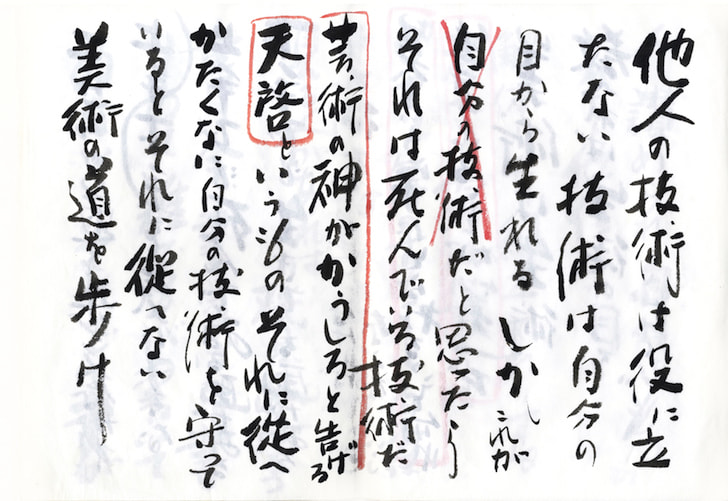 他人の技術は役に立
たない技術は自分の
目から生れる しかしこれが
自分の技術だと思ったら
それは死んでいる技術だ
芸術の神がかうしろと告げる
天啓といふもの それに従へ
かたくなに自分の技術を守って
いるとそれに従へない
美術の道を歩け